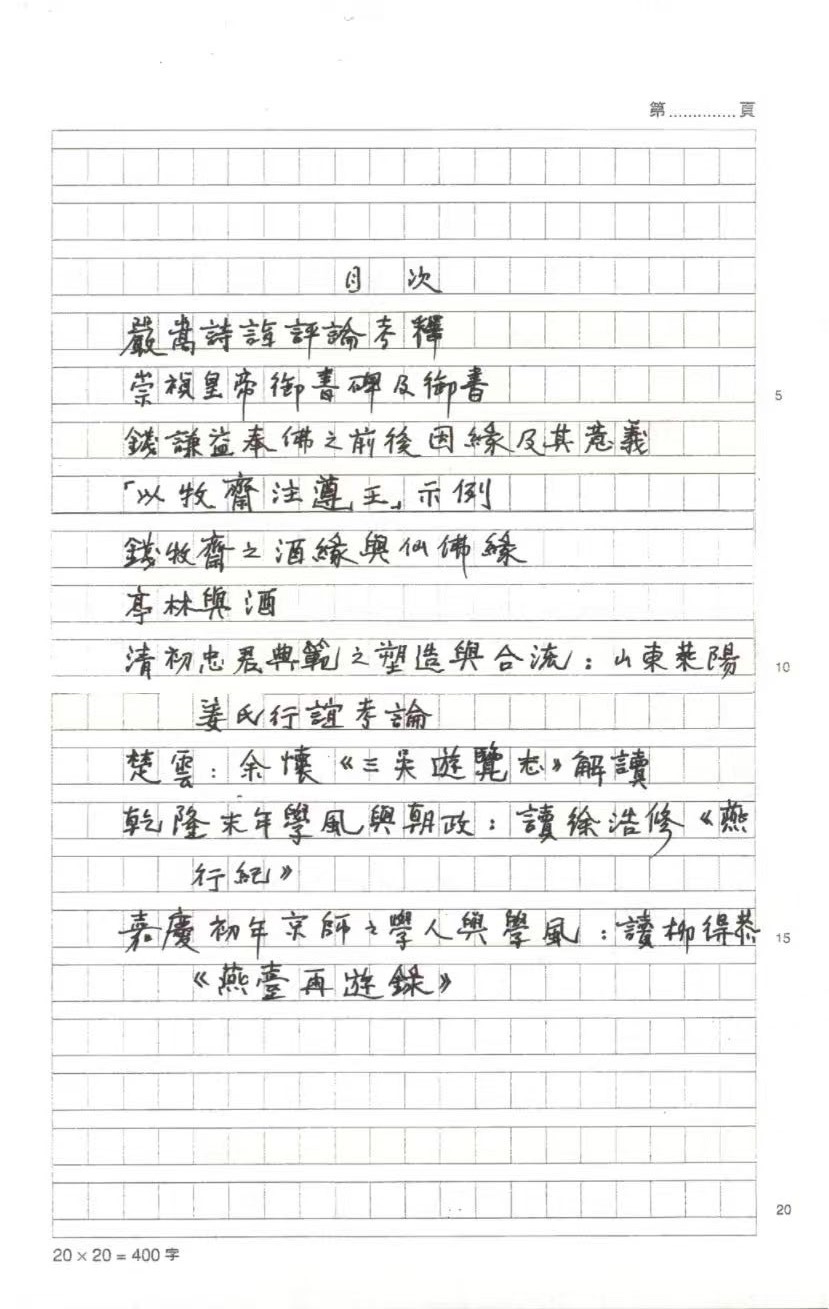 第.............頁
目次
嚴嵩詩詞評論考釋
崇禎皇帝御書碑及御書
錢謙益奉佛之前後因緣及其意義
「以牧齋注遵王」示例
錢牧齋之酒緣與仙佛緣
亭林與酒
清初忠君典範之塑造與合流：山東萊陽
姜氏行誼考論
楚雲：余懷《三吳遊覽志》解讀
乾隆末年學風與朝政：讀徐浩修《燕
行紀》
嘉慶初年京師之學人與學風：讀柳得恭
《燕臺再遊錄》
5
10
15
20
20 × 20 = 400 字